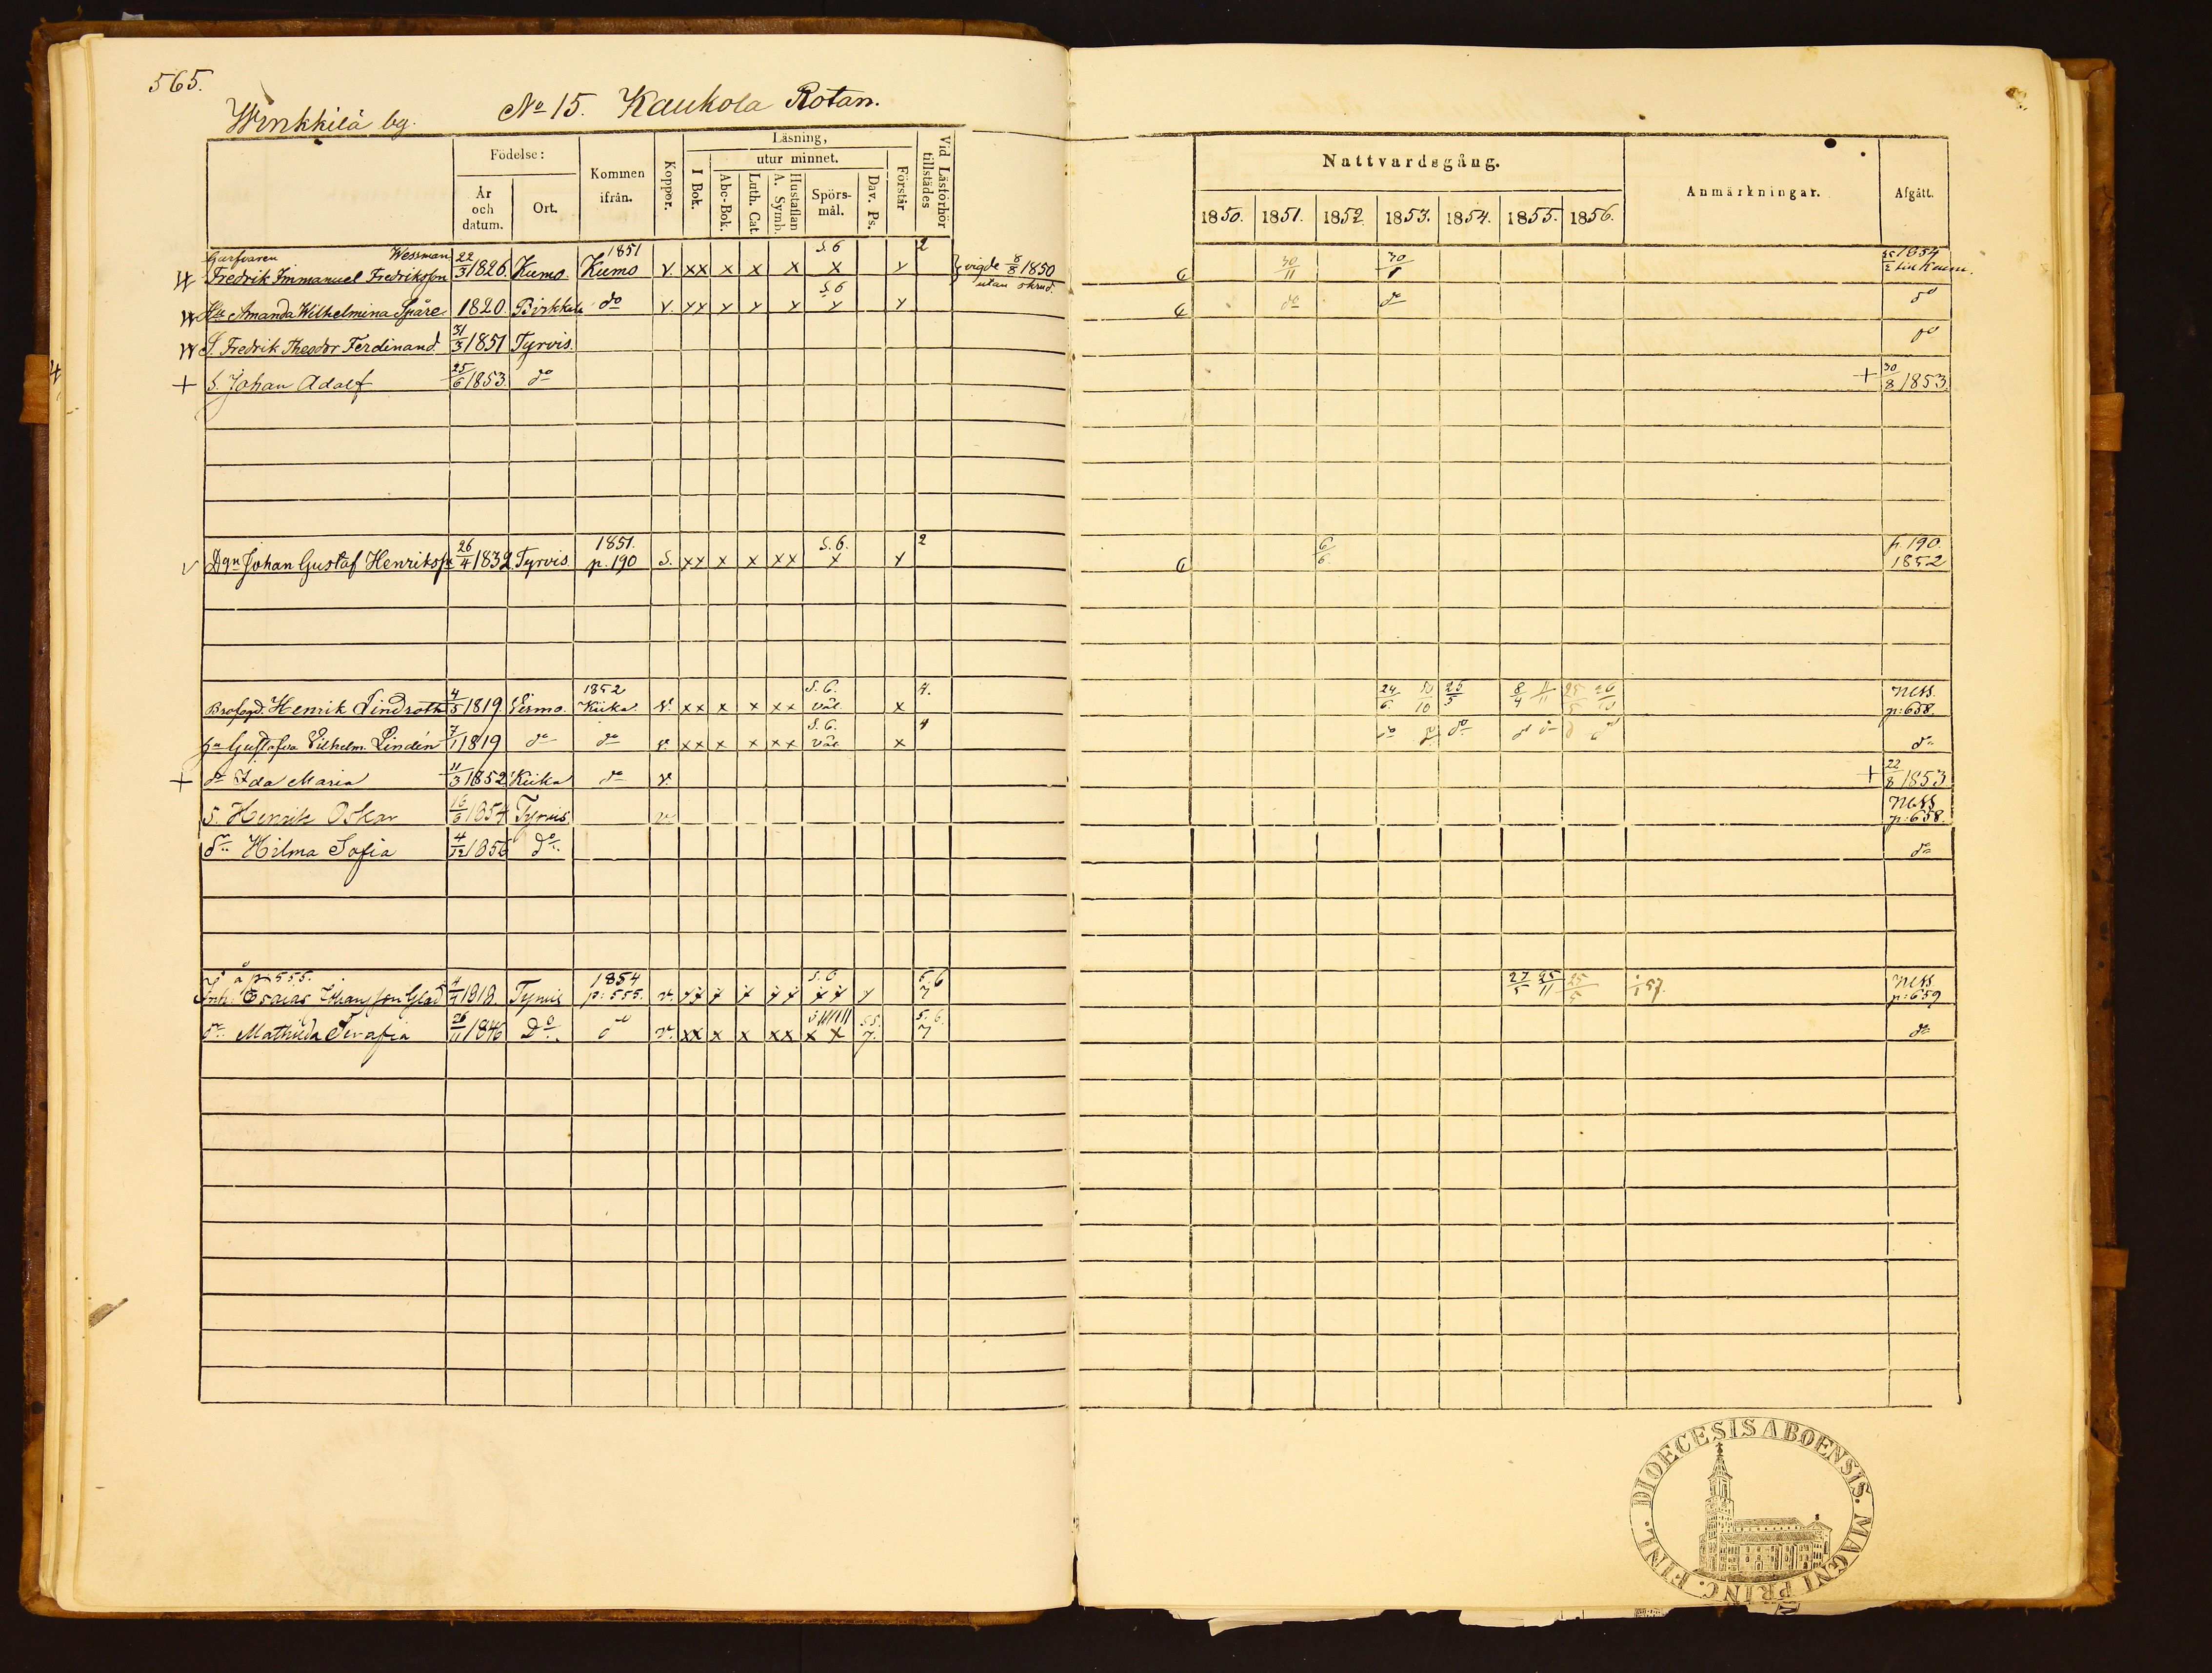 565.
Winkkilä by.
No 15. Kaukola Rotan.
Födelse:
År och datum.
Ort.
Kommen ifrån.
Koppor.
Läsning,
utur minnet.
I Bok.
Abc-Bok.
Luth. Cat.
Hustaflan A. Symb.
Spörsmål.
Dav. Ps.
Förstår
Vid Läsförhör tillstädes
Nattvardsgång.
1850. 1851. 1852. 1853. 1854. 1855. 1856.
Anmärkningar.
Afgått.
Garfvaren Wessman
Fredrik Immanuel Fredriksson 22/3 1826. Kumo. 1851 Kumo v. xx x x x S. 6 x y 2 vigde 8/8 1850 utan skrud. 30/11 1854
Amanda Wilhelmina Spåre 1820. Birkkala do v. xx y y y S. 6 y y do do do
S. Fredrik Theodor Ferdinand 31/3 1851 Tyrvis. do
+ S. Johan Adolf 25/6 1853. do + 30/8 1853.
Dgn Johan Gustaf Henriksn 26/4 1832 Tyrvis. 1851. p. 190 S. xx x x xx S. 6. x y 2 6/6 p. 190. 1852
Henrik Lindroth 4/5 1819 1852 Kiika v. xx x x xx S. 6. väl x 4. 24/6 10/10 25/5 8/4 p: 658.
Gustafva Vilhelm. Lindén 7/1 1819 do do v. xx x x xx S. 6. väl x 4 do do do do
+ dr Ida Maria 11/3 1852 Kiika do v. + 22/8 1853
S. Henrik Oskar 16/6 1854 Tyrvis v p: 658.
dr. Hilma Sofia 4/12 1856 do do
å p. 555.
Inh: Esaias Johansson Glad 4/4 1818. Tyrvis 1854 p: 555. v. S. 6 5.6 7 27/5 25/11 25/5 1/1 57. p: 659
dr. Mathilda Serafia 26/11 1846 Do. do v. xx x x xx x x 5.5. 7. 5. 6. 7 do
DIOECESIS ABOENSIS. MAGNI PRINC. FINL.